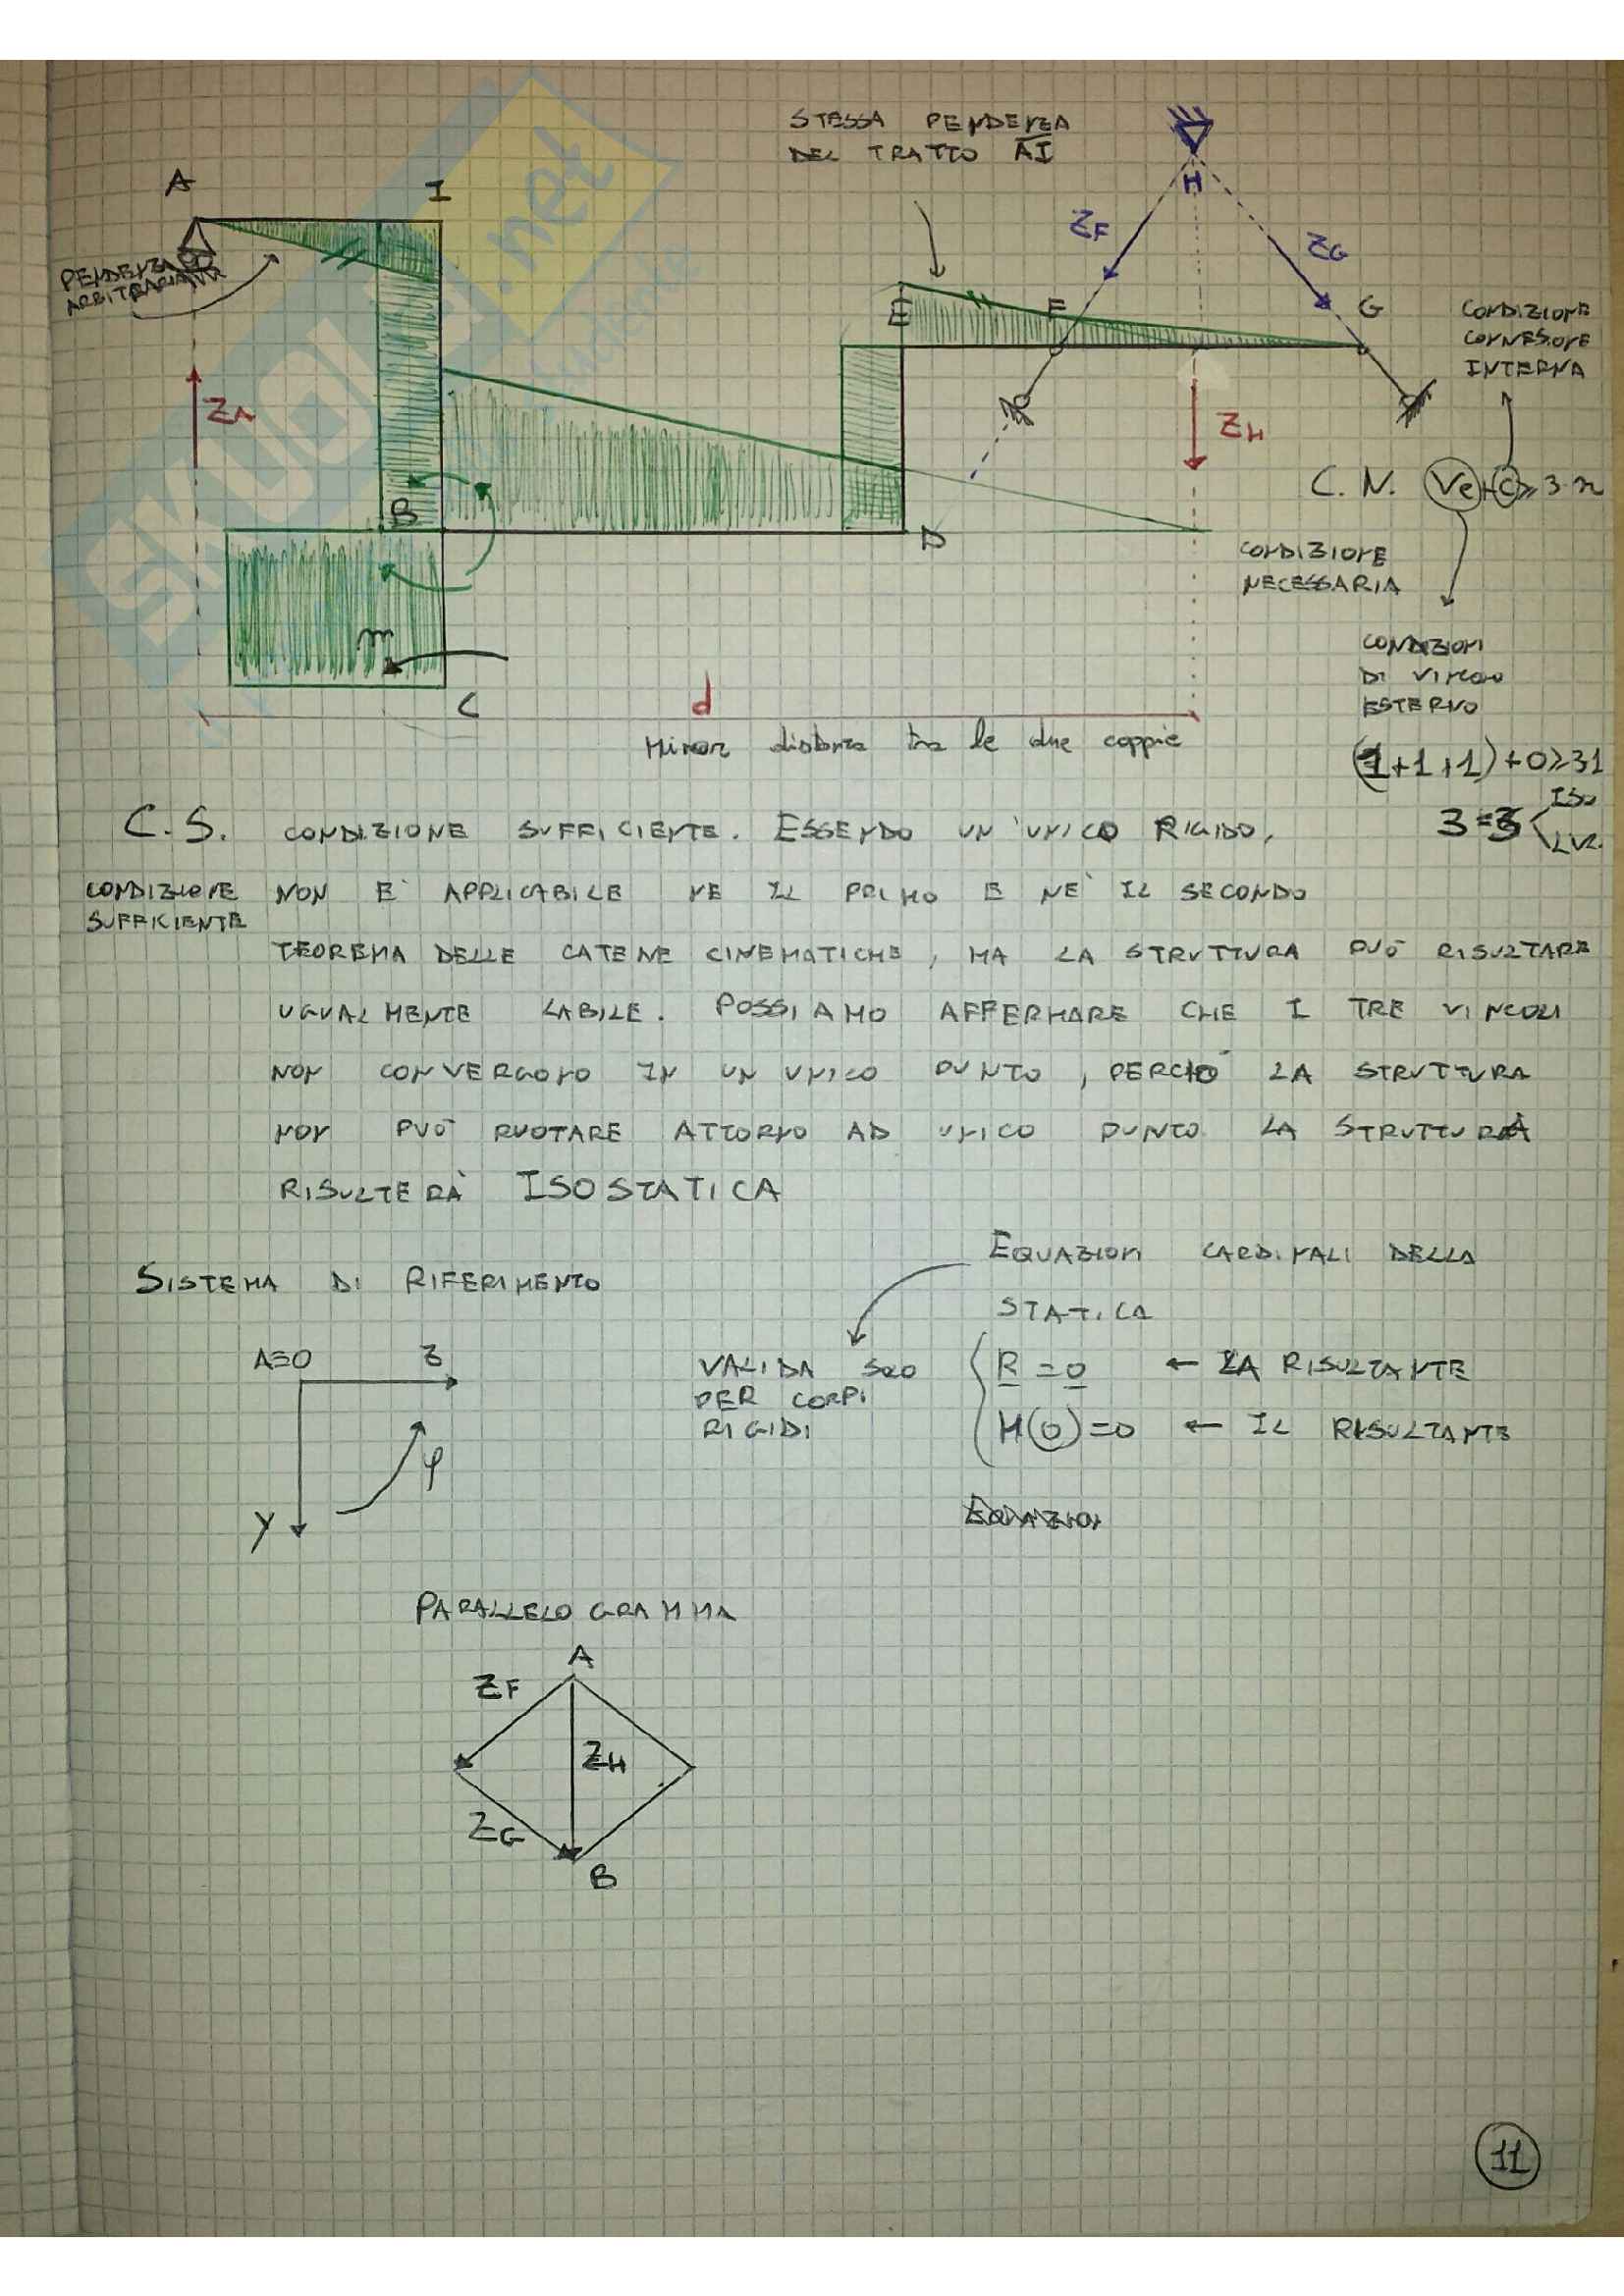 STESSA PENDENZA
DEL TRATTO AI
H
A
I
ZF
ZG
PENDENZA
ARBITRARIA
E
F
G
CONDIZIONE
CONNESSIONE
INTERNA
ZA
ZH
C.N. Ve+C≥3·n
B
D
CONDIZIONE
NECESSARIA
m
C
CONDIZIONI
DI VINCOLO
ESTERNO
d
Minor distanza tra le due coppie
(1+1+1)+0≥31
3=3
ISO
C.S. CONDIZIONE SUFFICIENTE. ESSENDO UN'UNICO RIGIDO,
CONDIZIONE
SUFFICIENTE
NON E' APPLICABILE NE IL PRIMO E NE' IL SECONDO
TEOREMA DELLE CATENE CINEMATICHE, MA LA STRUTTURA PUÒ RISULTARE
UGUALMENTE LABILE. POSSIAMO AFFERMARE CHE I TRE VINCOLI
NON CONVERGONO IN UN UNICO PUNTO, PERCIÒ LA STRUTTURA
NON PUÒ RUOTARE ATTORNO AD UNICO PUNTO LA STRUTTURA
RISULTERÀ ISOSTATICA
SISTEMA DI RIFERIMENTO
EQUAZIONI CARDINALI DELLA
STATICA
A≡O
z
VALIDA SOLO
PER CORPI
RIGIDI
R = 0 ← LA RISULTANTE
M(O)=0 ← IL RISULTANTE
φ
Y
PARALLELOGRAMMA
A
ZF
ZH
ZG
B
11
SKUOLA.net